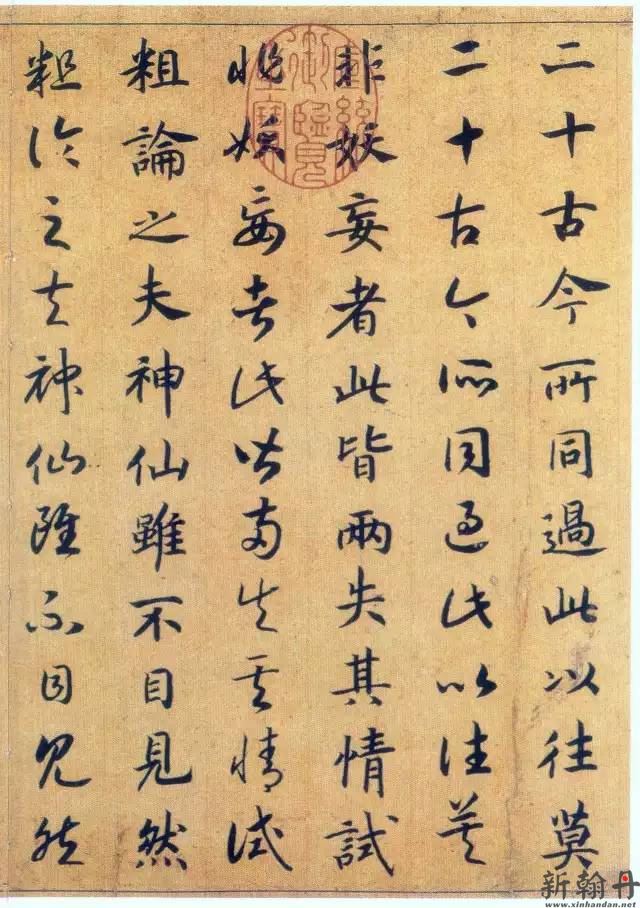 二十古今所同過此以往莫
二十古今所同過此以往莫
非妖妄者此皆兩失其情試
非妖妄者此皆兩失其情試
粗論之夫神仙雖不目見然
粗論之夫神仙雖不目見然
新翰丹
www.xinhandan.net